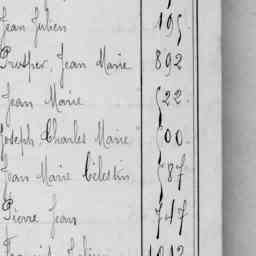 Jean Julien 105
Prosper, Jean Marie 892
Jean Marie 522
Joseph Charles Marie 500
Jean Marie Célestin 587
Pierre Jean 747